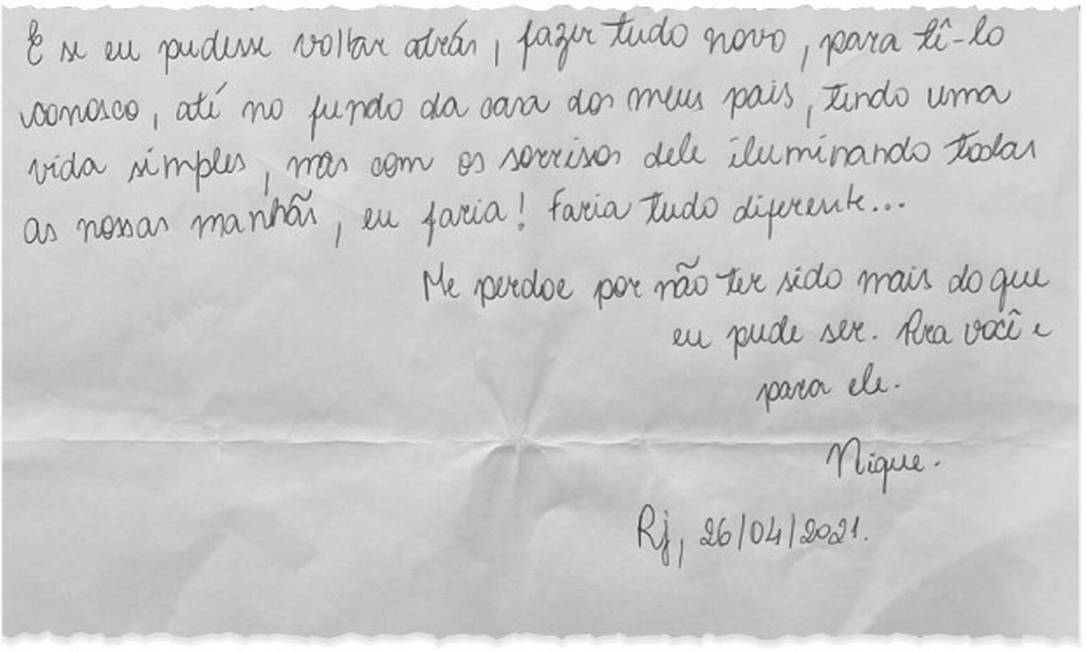 E se eu pudesse voltar atrás, fazer tudo novo, para tê-lo
conosco, até no fundo da casa dos meus pais, tendo uma
vida simples, mas com os sorrisos dele iluminando todas
as nossas manhãs, eu faria! Faria tudo diferente...
Me perdoe por não ter sido mais do que
eu pude ser. Pra você e
para ele.
Nique.
Rj, 26/04/2021.